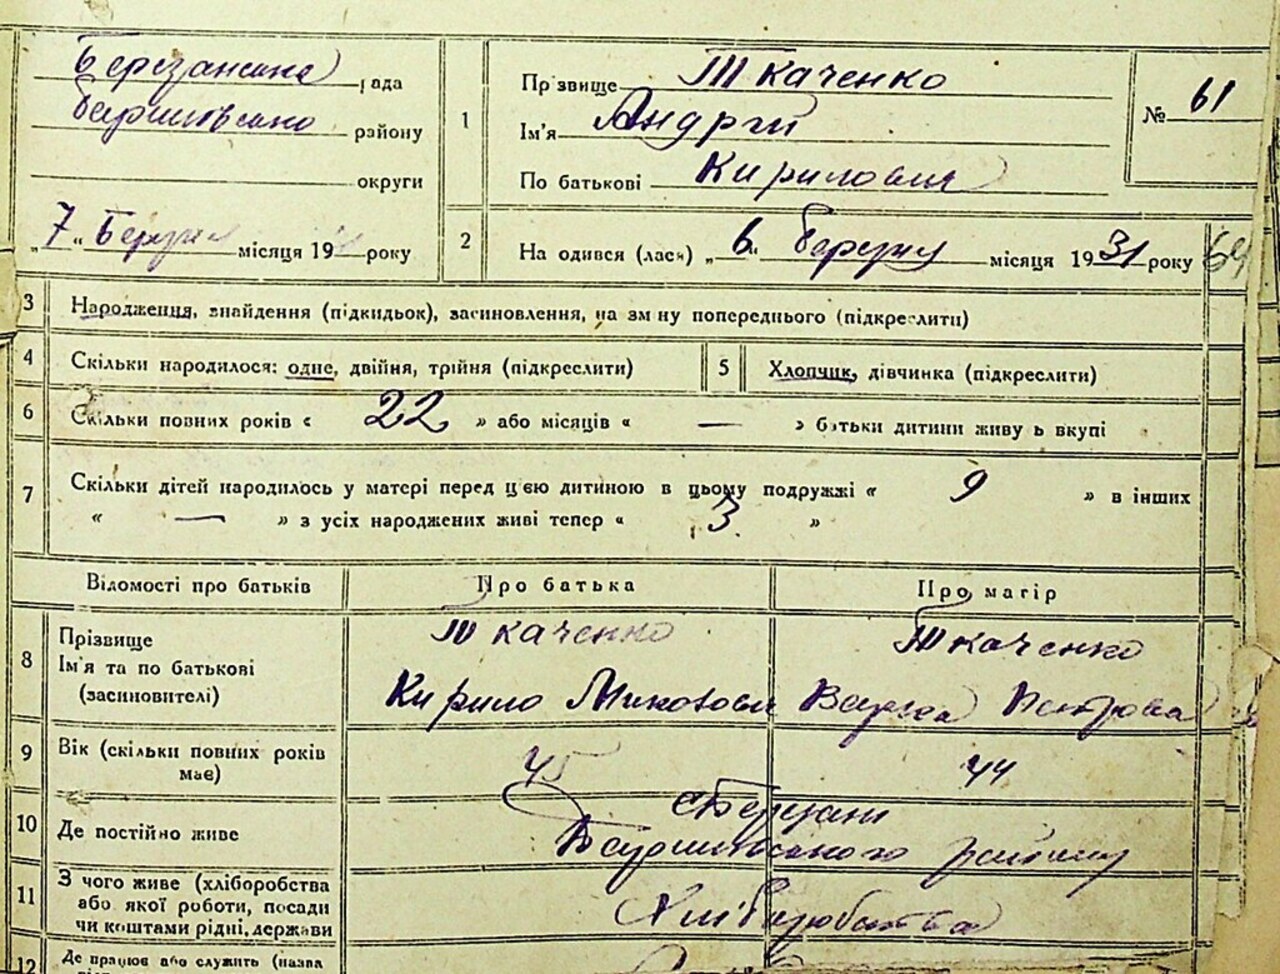 Березанська рада
Баришівсько району
округи
„7“ Березня місяця 19 року
1
Прізвище Ткаченко
Ім'я Андрій
По батькові Кирилович
№ 61
2
На одився (лася) „6“ березня місяця 1931 року
3 Народження, знайдення (підкидьок), засиновлення, на зм ну попереднього (підкреслити)
4 Скільки народилося: одне, двійня, трійня (підкреслити)
5 Хлопчик, дівчинка (підкреслити)
6 Скільки повних років « 22 » або місяців « — » батьки дитини живу ь вкупі
7 Скільки дітей народилось у матері перед цією дитиною в цьому подружжі « 9 » в інших
« — » з усіх народжених живі тепер « 3 »
Відомості про батьків Про батька Про матір
8 Прізвище
Ім'я та по батькові
(засиновителі)
Ткаченко
Кирило
Ткаченко
Петрова
9 Вік (скільки повних років
має)
45 44
10 Де постійно живе
с Березані
Баришівського району
11 З чого живе (хліборобства
або якої роботи, посади
чи коштами рідні, держави
Хліборобства
12 Де працює або служить (назва